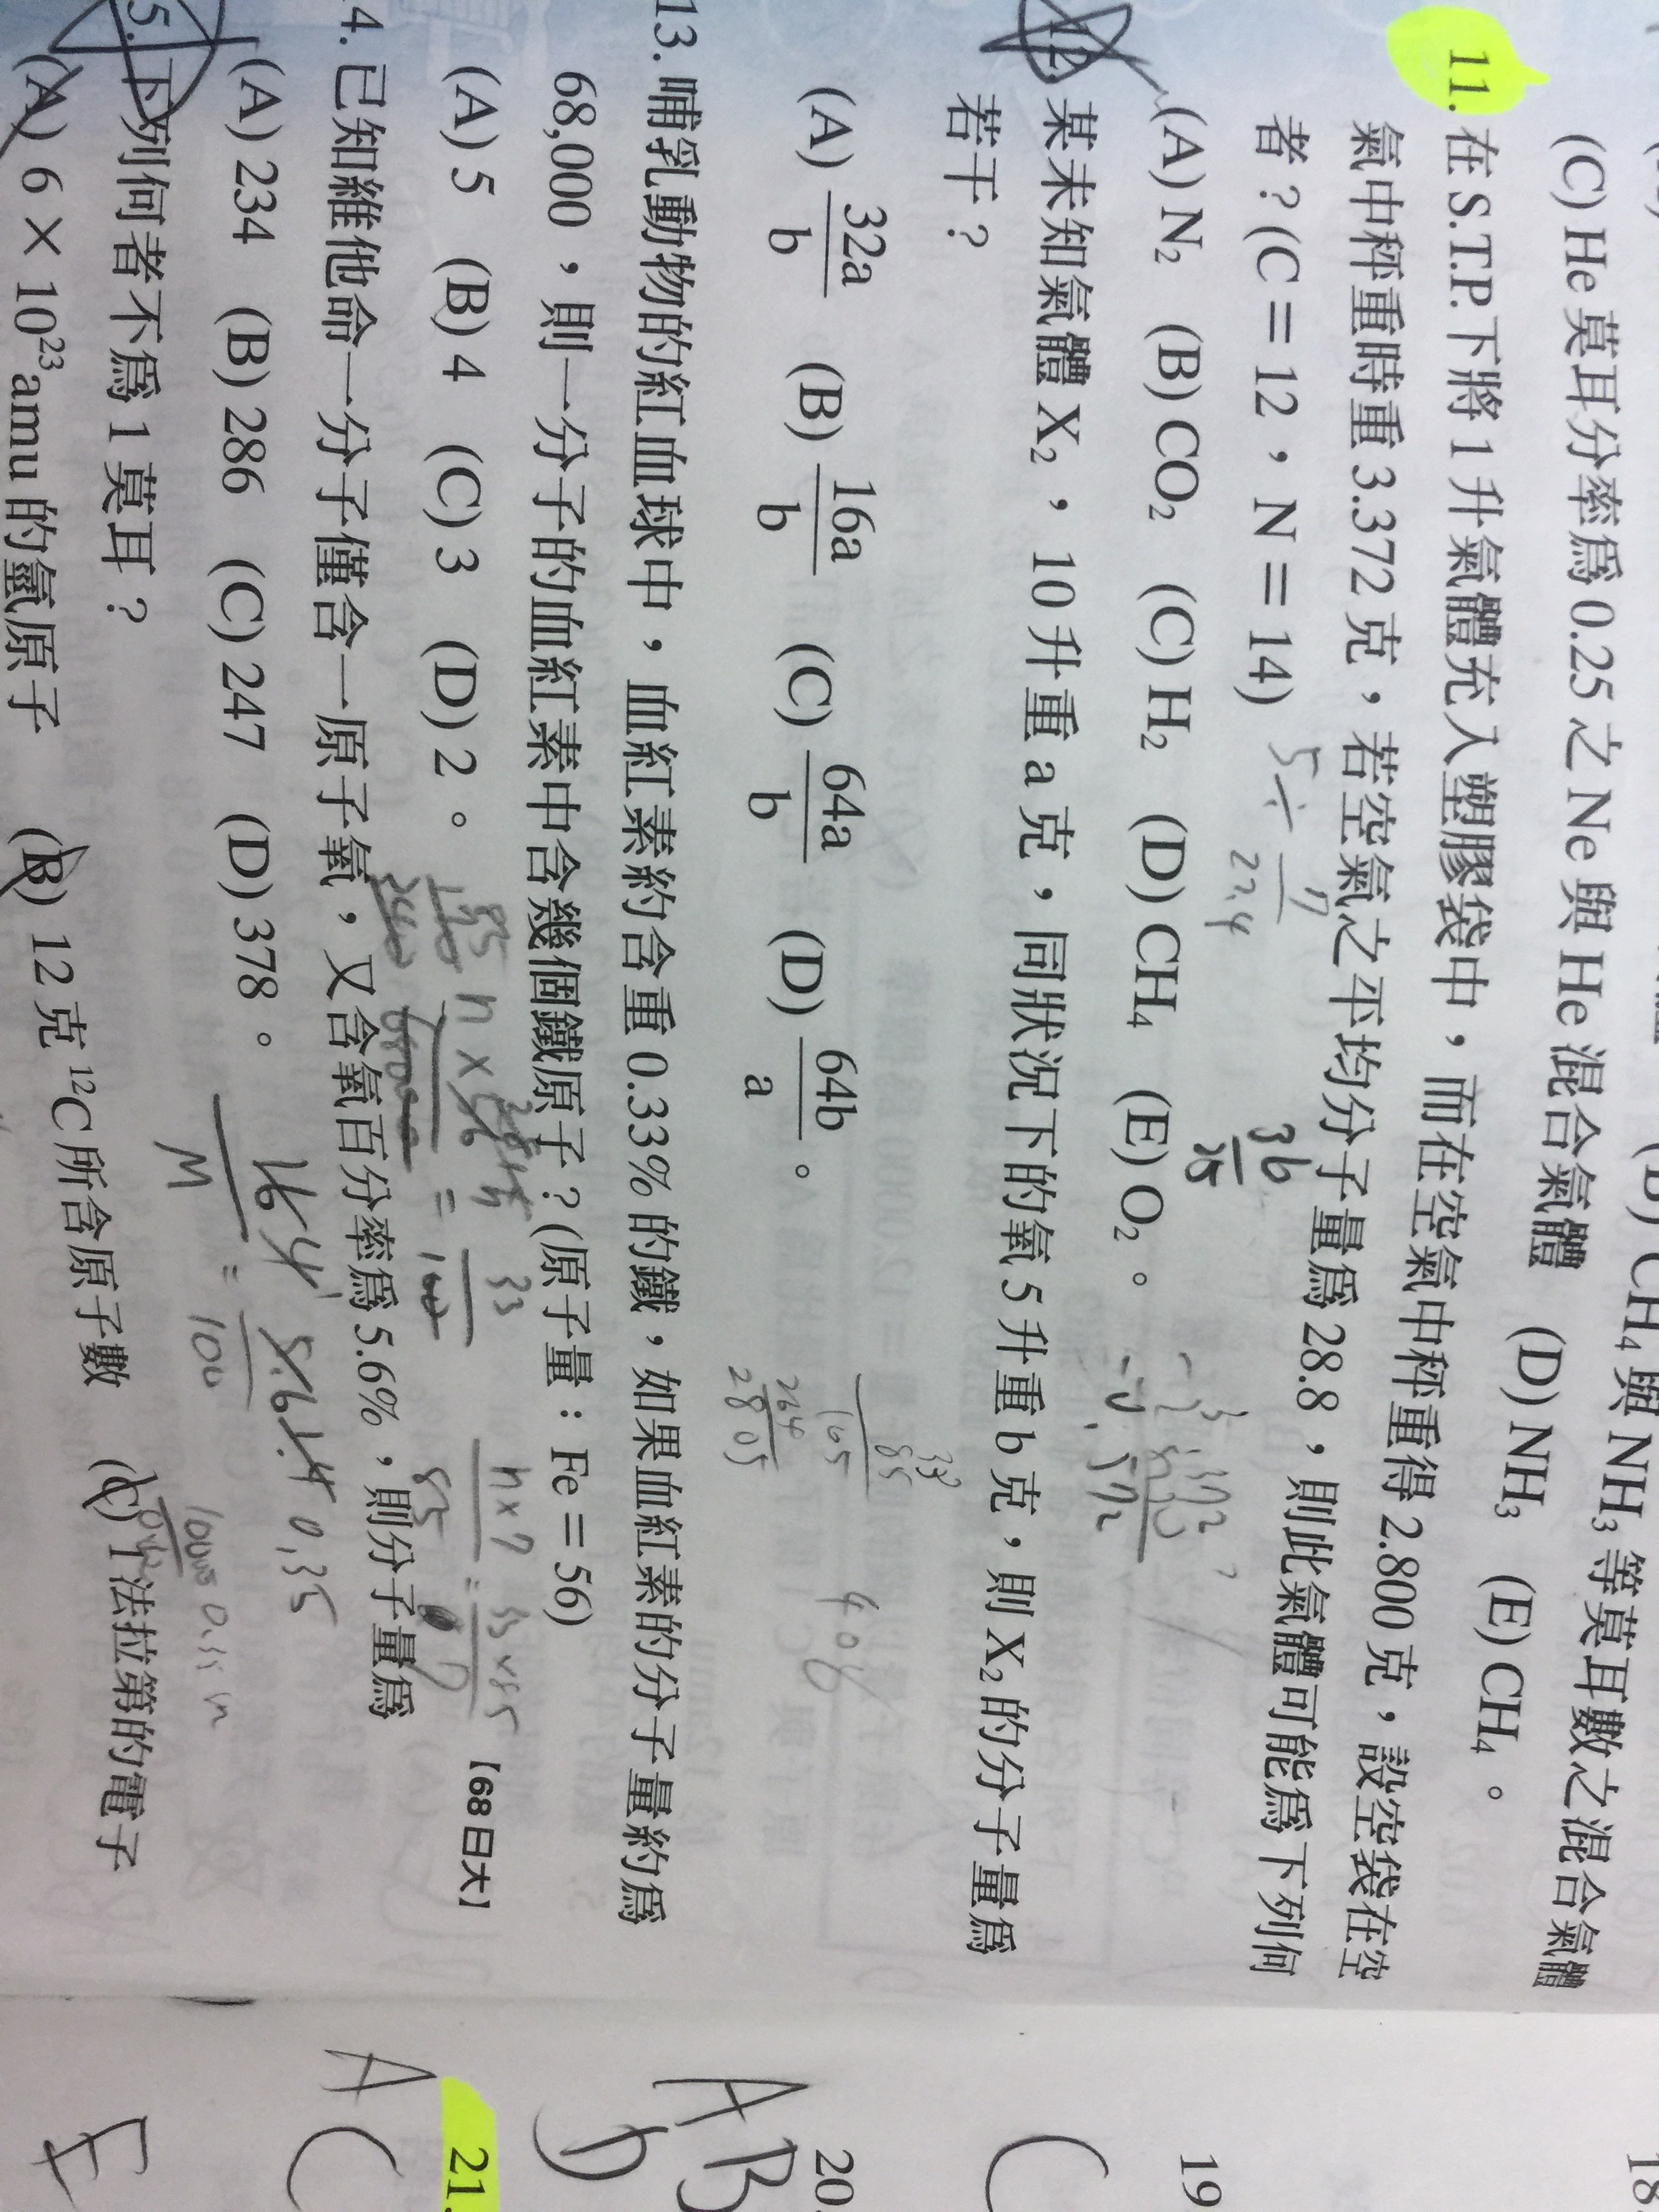 (B) CH₄ 與 NH₃ 等莫耳數之混合氣體
(C) He 莫耳分率為 0.25 之 Ne 與 He 混合氣體 (D) NH₃ (E) CH₄。
11. 在 S.T.P.下將 1 升氣體充入塑膠袋中，而在空氣中秤重得 2.800 克，設空袋在空
氣中秤重時重 3.372 克，若空氣之平均分子量為 28.8，則此氣體可能為下列何
者？(C＝12，N＝14)
5 ÷ 22.4
36
(A) N₂ (B) CO₂ (C) H₂ (D) CH₄ (E) O₂。
12. 某未知氣體 X₂，10 升重 a 克，同狀況下的氧 5 升重 b 克，則 X₂ 的分子量為
若干？
(A) 32a/b (B) 16a/b (C) 64a/b (D) 64b/a。
165
264
2805
408
13. 哺乳動物的紅血球中，血紅素約含重 0.33% 的鐵，如果血紅素的分子量約為
68,000，則一分子的血紅素中含幾個鐵原子？(原子量：Fe＝56)
(A) 5 (B) 4 (C) 3 (D) 2。 【68日大】
n × 56
4. 已知維他命一分子僅含一原子氧，又含氧百分率為 5.6%，則分子量為
(A) 234 (B) 286 (C) 247 (D) 378。
16/M = 5.6/100
0.35
5. 下列何者不為 1 莫耳？
(A) 6 × 10²³ amu 的氫原子 (B) 12 克 ¹²C 所含原子數 (C) 1 法拉第的電子
18.
19
20.
21.
C
AB
D
A
C
E